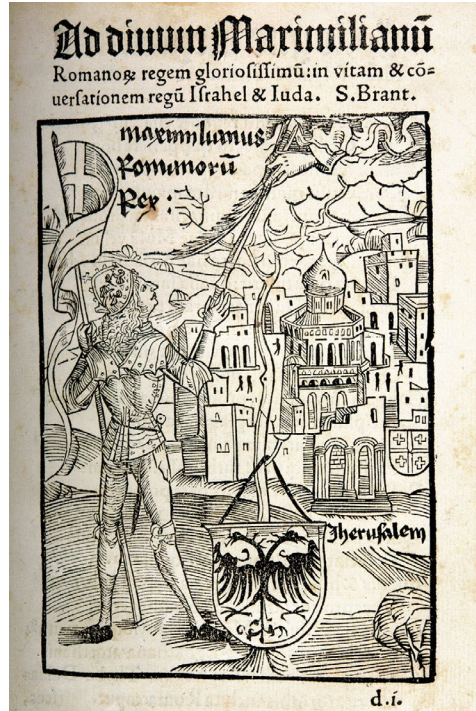 Ad diuum Maximilianū
Romanoꝝ regem gloriosissimū: in vitam & cō=
uersationem regū Israhel & Iuda. S. Brant.
maximilianus
Romanorū
Rex :
Iherusalem
d.i.